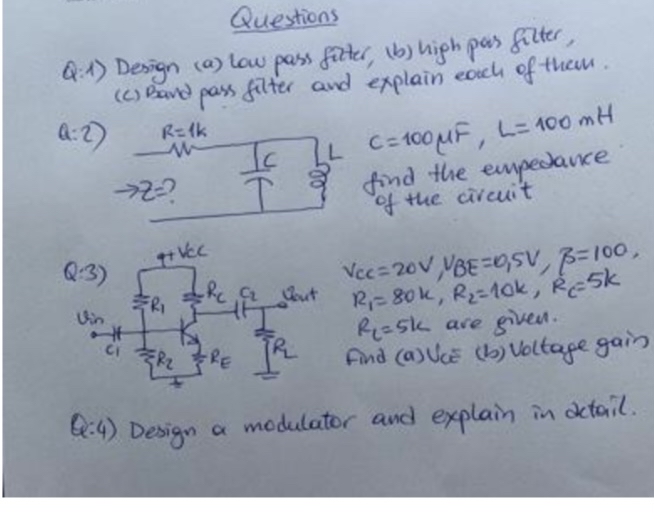 Questions
Q:1) Design (a) Low pass filter, (b) high pass filter,
(c) Band pass filter and explain each of them.
Q:2) R=1k C L C=100μF, L=100 mH
→Z=? find the empedance
of the circuit
Q:3) +Vcc Vcc=20V, VBE=0,5V, β=100,
Vin C1 R1 RC C2 Vout R1=80k, R2=10k, RC=5k
R2 RE RL RL=5k are given.
Find (a) VCE (b) Voltage gain
Q:4) Design a modulator and explain in detail.